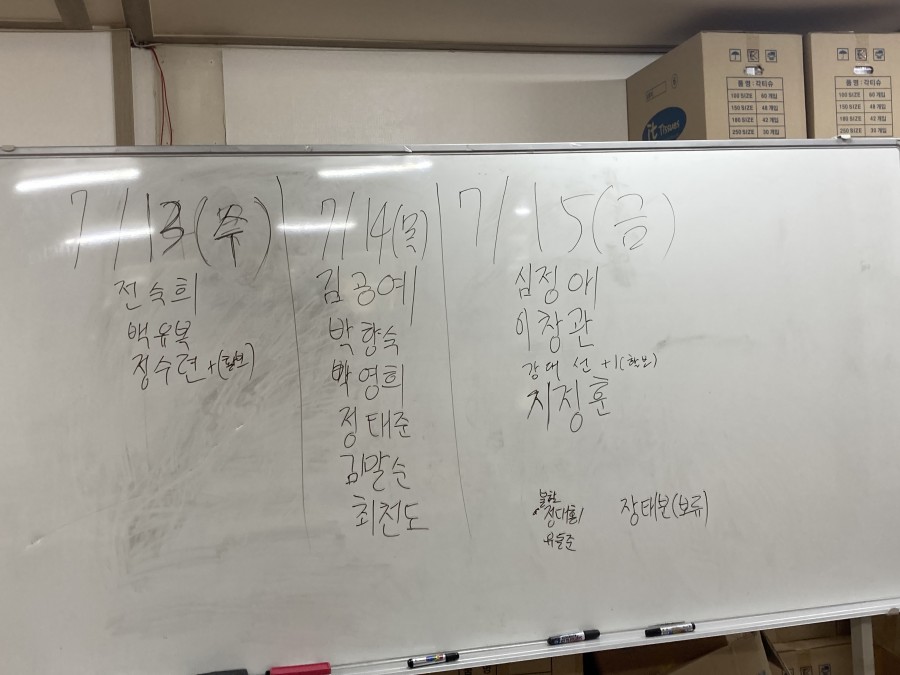 품명 : 각티슈
100 SIZE 60 개입
150 SIZE 48 개입
180 SIZE 42 개입
250 SIZE 30 개입
품명 : 각티슈
100 SIZE 60 개입
150 SIZE 48 개입
180 SIZE 42 개입
250 SIZE 30 개입
7/13(수)
전숙희
백유복
정수련
7/14(목)
김공예
박향숙
박영희
정태준
김말순
최천도
7/15(금)
심정애
이창관
강대선 +1(확보)
지정훈
불참
정대훈
유슬준
장태본(보류)